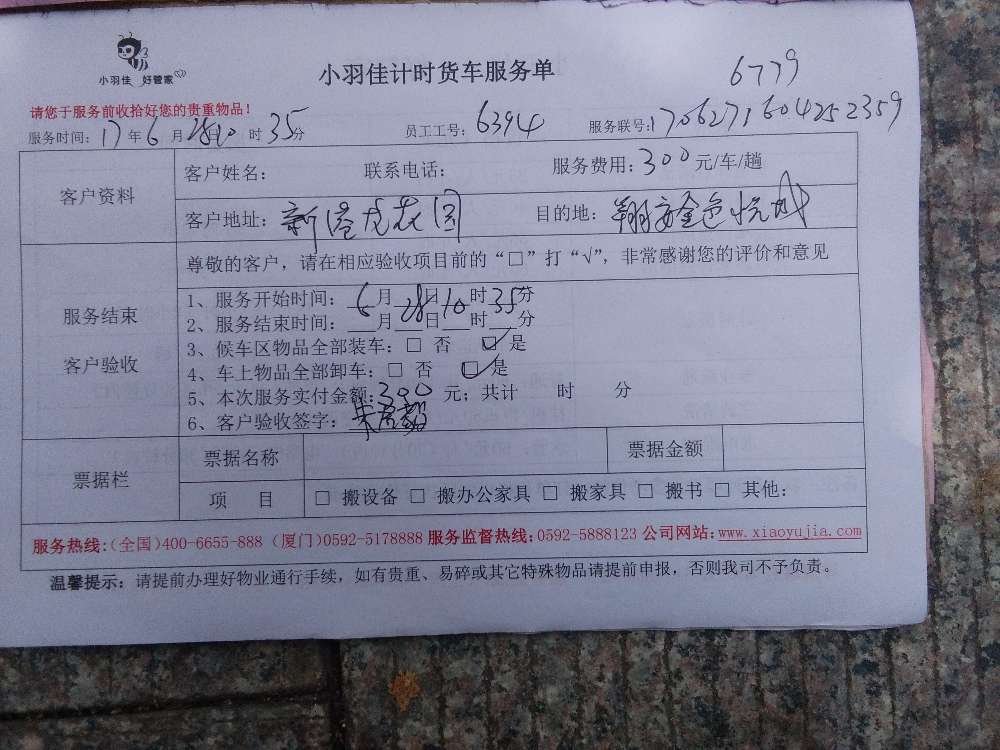 小羽佳 好管家
小羽佳计时货车服务单
6779
请您于服务前收拾好您的贵重物品！
服务时间：17年6月28日10时35分 员工工号：6394 服务联号：170627160425 2359
客户资料
客户姓名： 联系电话： 服务费用：300元/车/趟
客户地址：新港龙花园 目的地：翔安金色悦城
服务结束
客户验收
尊敬的客户，请在相应验收项目前的“□”打“√”，非常感谢您的评价和意见
1、服务开始时间：6月28日10时35分
2、服务结束时间：___月___日___时___分
3、候车区物品全部装车：□ 否 □ 是
4、车上物品全部卸车：□ 否 □ 是
5、本次服务实付金额：300元；共计 时 分
6、客户验收签字：
票据栏
票据名称 票据金额
项 目 □ 搬设备 □ 搬办公家具 □ 搬家具 □ 搬书 □ 其他：
服务热线：（全国）400-6655-888（厦门）0592-5178888 服务监督热线：0592-5888123 公司网站：www.xiaoyujia.com
温馨提示：请提前办理好物业通行手续，如有贵重、易碎或其它特殊物品请提前申报，否则我司不予负责。